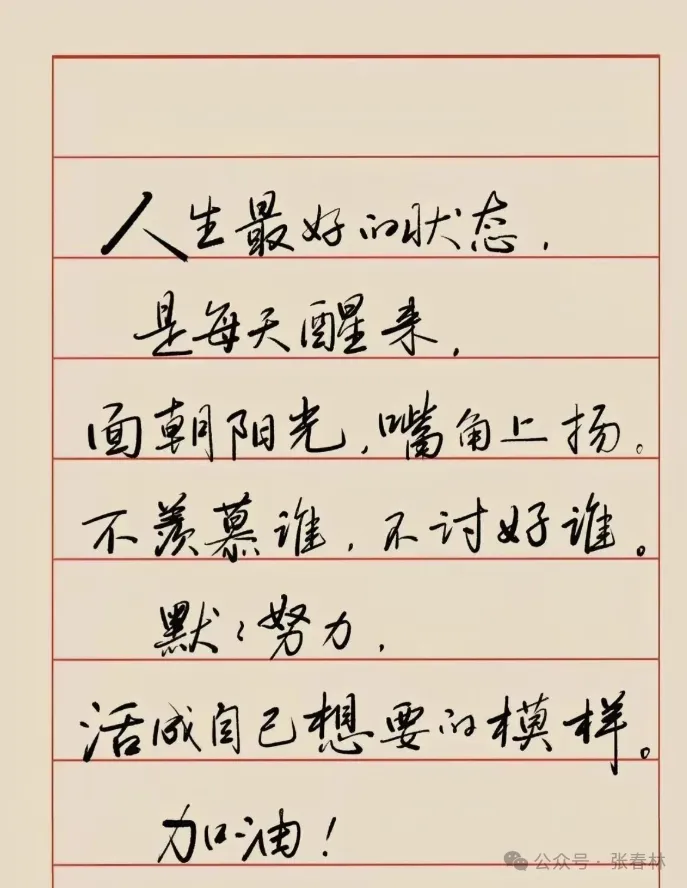 人生最好的状态，
是每天醒来，
面朝阳光，嘴角上扬。
不羡慕谁，不讨好谁。
默々努力，
活成自己想要的模样。
加油！
公众号·张春林